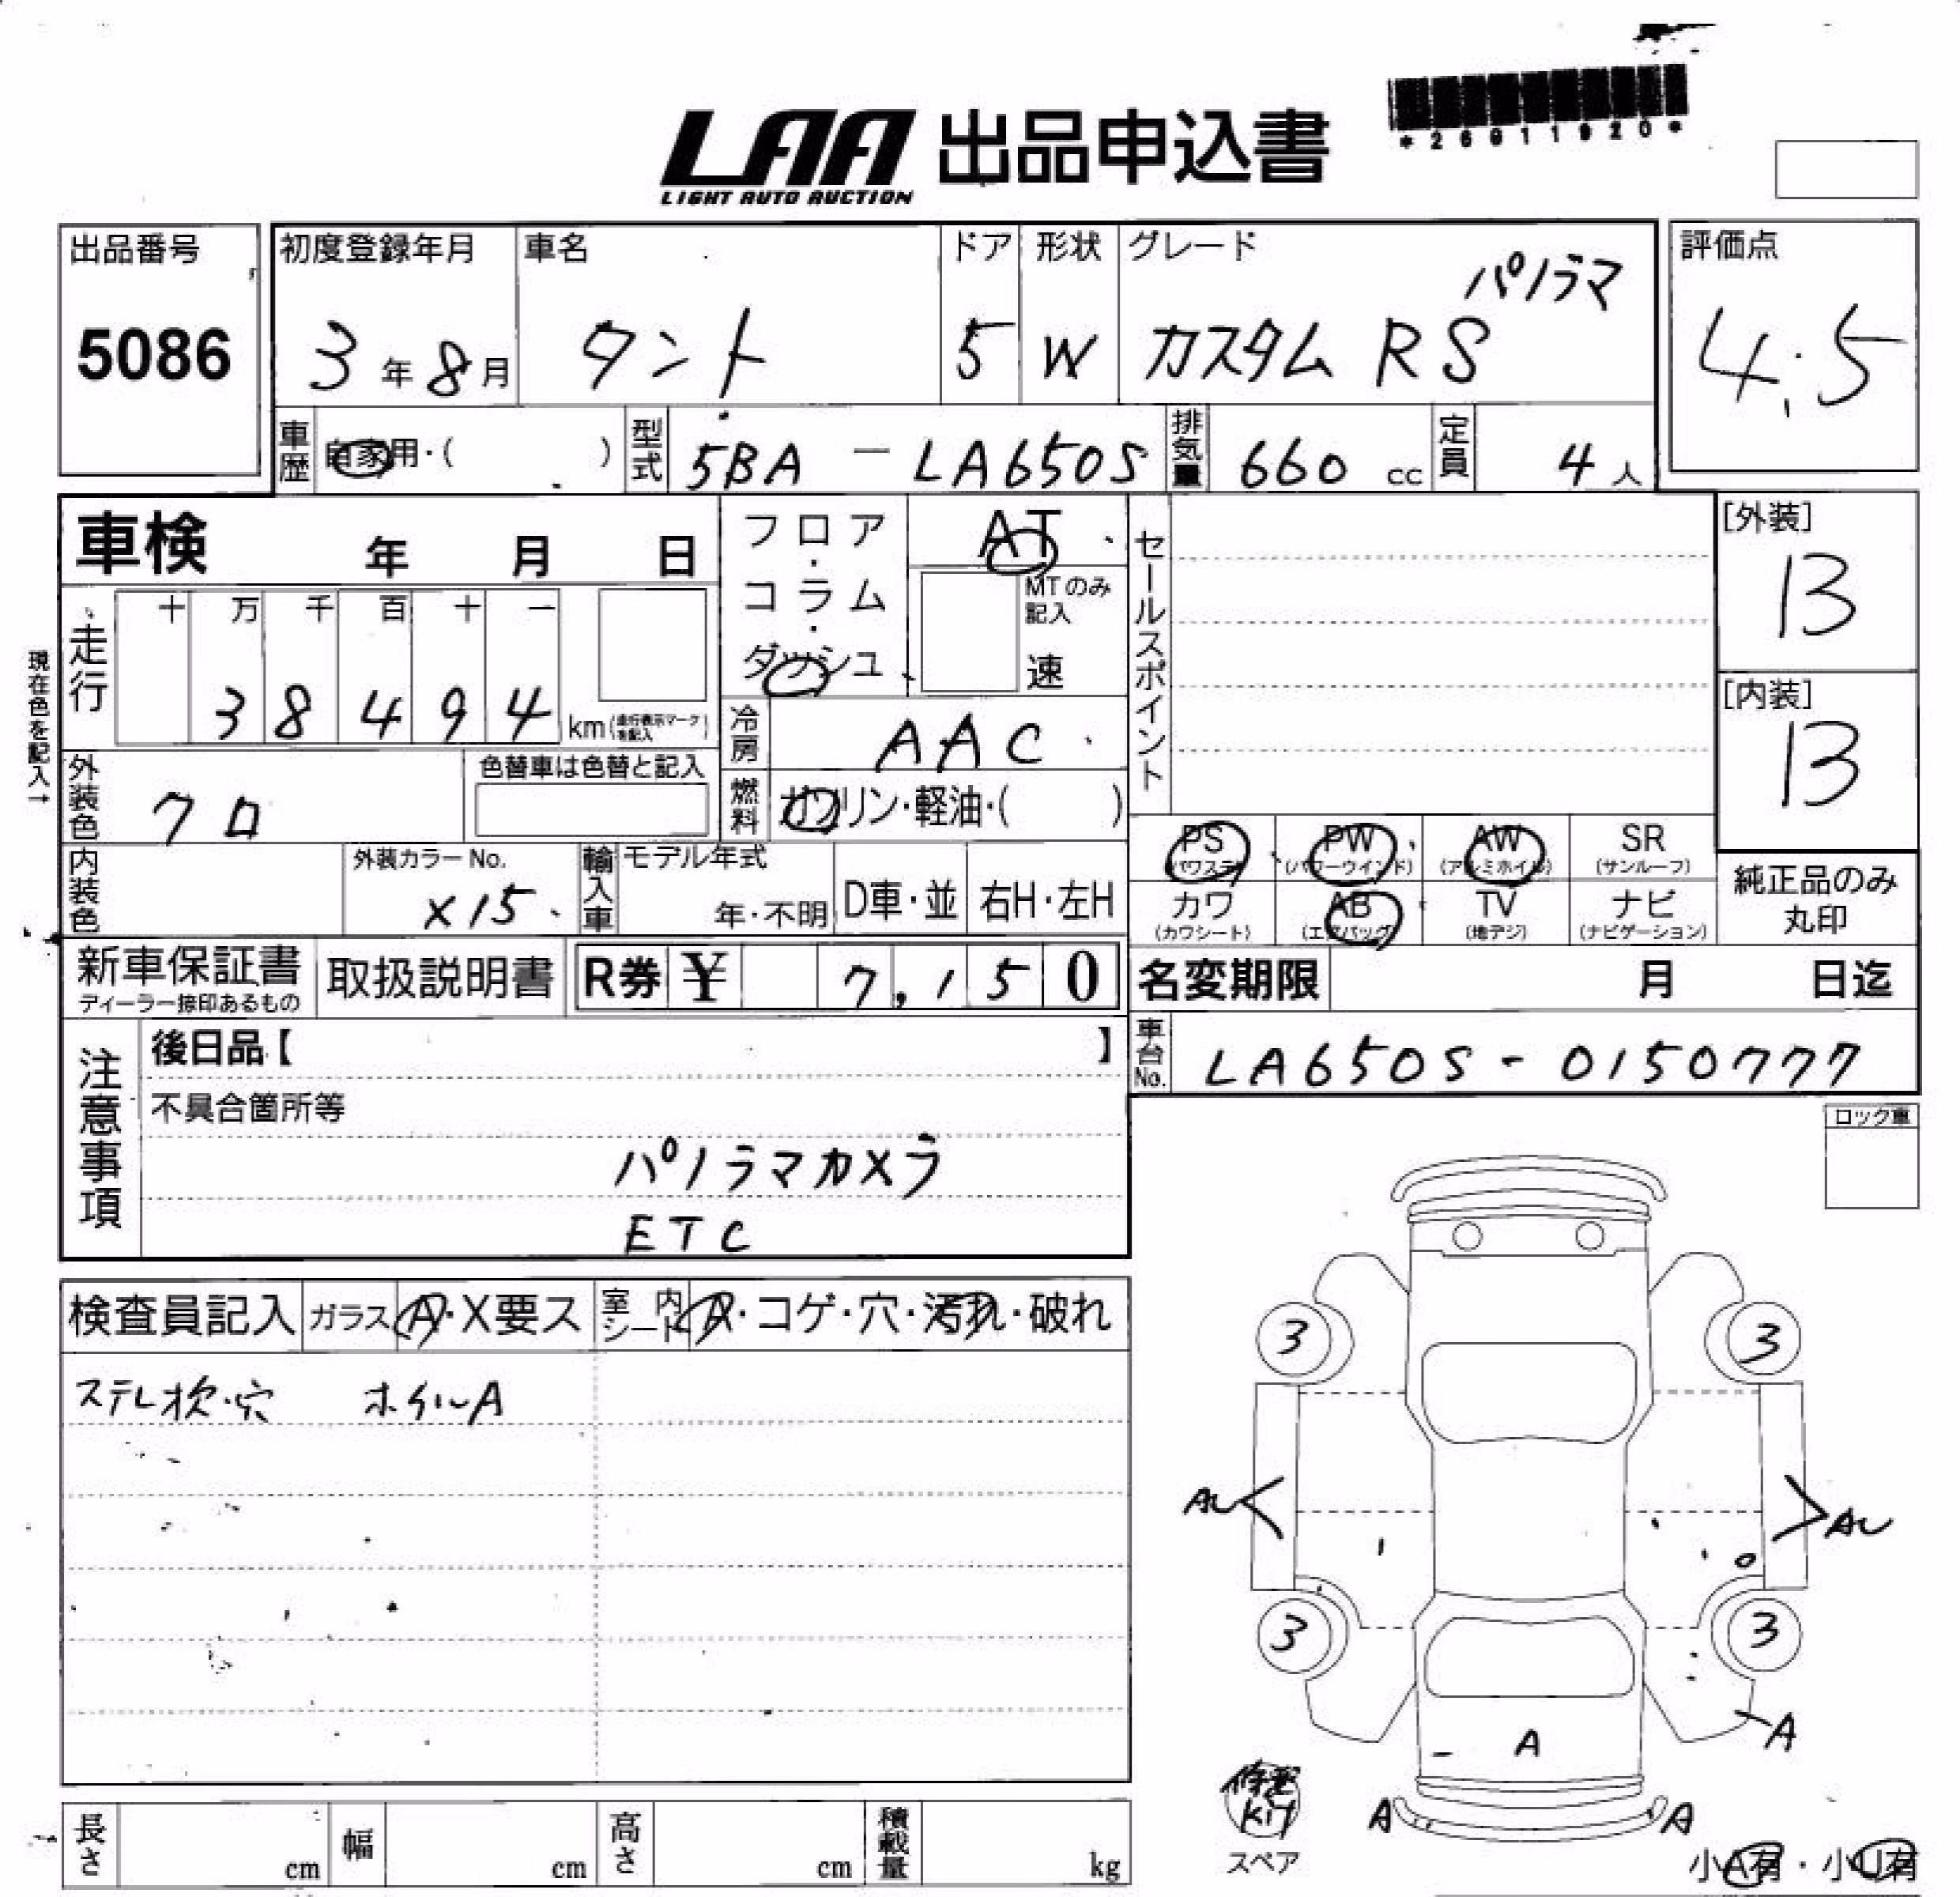 LAA 出品申込書
LIGHT AUTO AUCTION
出品番号
5086
初度登録年月
3年8月
車名
タント
ドア
5
形状
W
グレード
パノラマ
カスタム RS
評価点
4.5
車歴 自家用・( )
型式 5BA - LA650S
排気量 660 cc
定員 4人
車検 年 月 日
フロア・コラム・ダッシュ
AT
MTのみ記入
速
セールスポイント
[外装]
13
[内装]
13
現在色を記入→
走行
十 万 千 百 十 一
3 8 4 9 4 km(走行表示マークを記入)
冷房 AAC
外装色 クロ
色替車は色替と記入
燃料 ガソリン・軽油・( )
内装色
外装カラーNo.
X15
輸入車
モデル年式
年・不明
D車・並
右H・左H
PS (パワステ)
PW (パワーウインド)
AW (アルミホイル)
SR (サンルーフ)
カワ (カワシート)
AB (エアバッグ)
TV (地デジ)
ナビ (ナビゲーション)
純正品のみ
丸印
新車保証書
ディーラー捺印あるもの
取扱説明書
R券 ¥ 7,150
名変期限 月 日迄
車台No. LA650S-0150777
注意事項
後日品【 】
不具合箇所等
パノラマカメラ
ETC
ロック車
検査員記入
ガラス A・X要ス
室内シート A・コゲ・穴・汚れ・破れ
ホイルA
3
3
Au
Au
3
3
A
A
A
A
スペア
小A有・小U有
長さ cm
幅 cm
高さ cm
積載量 kg